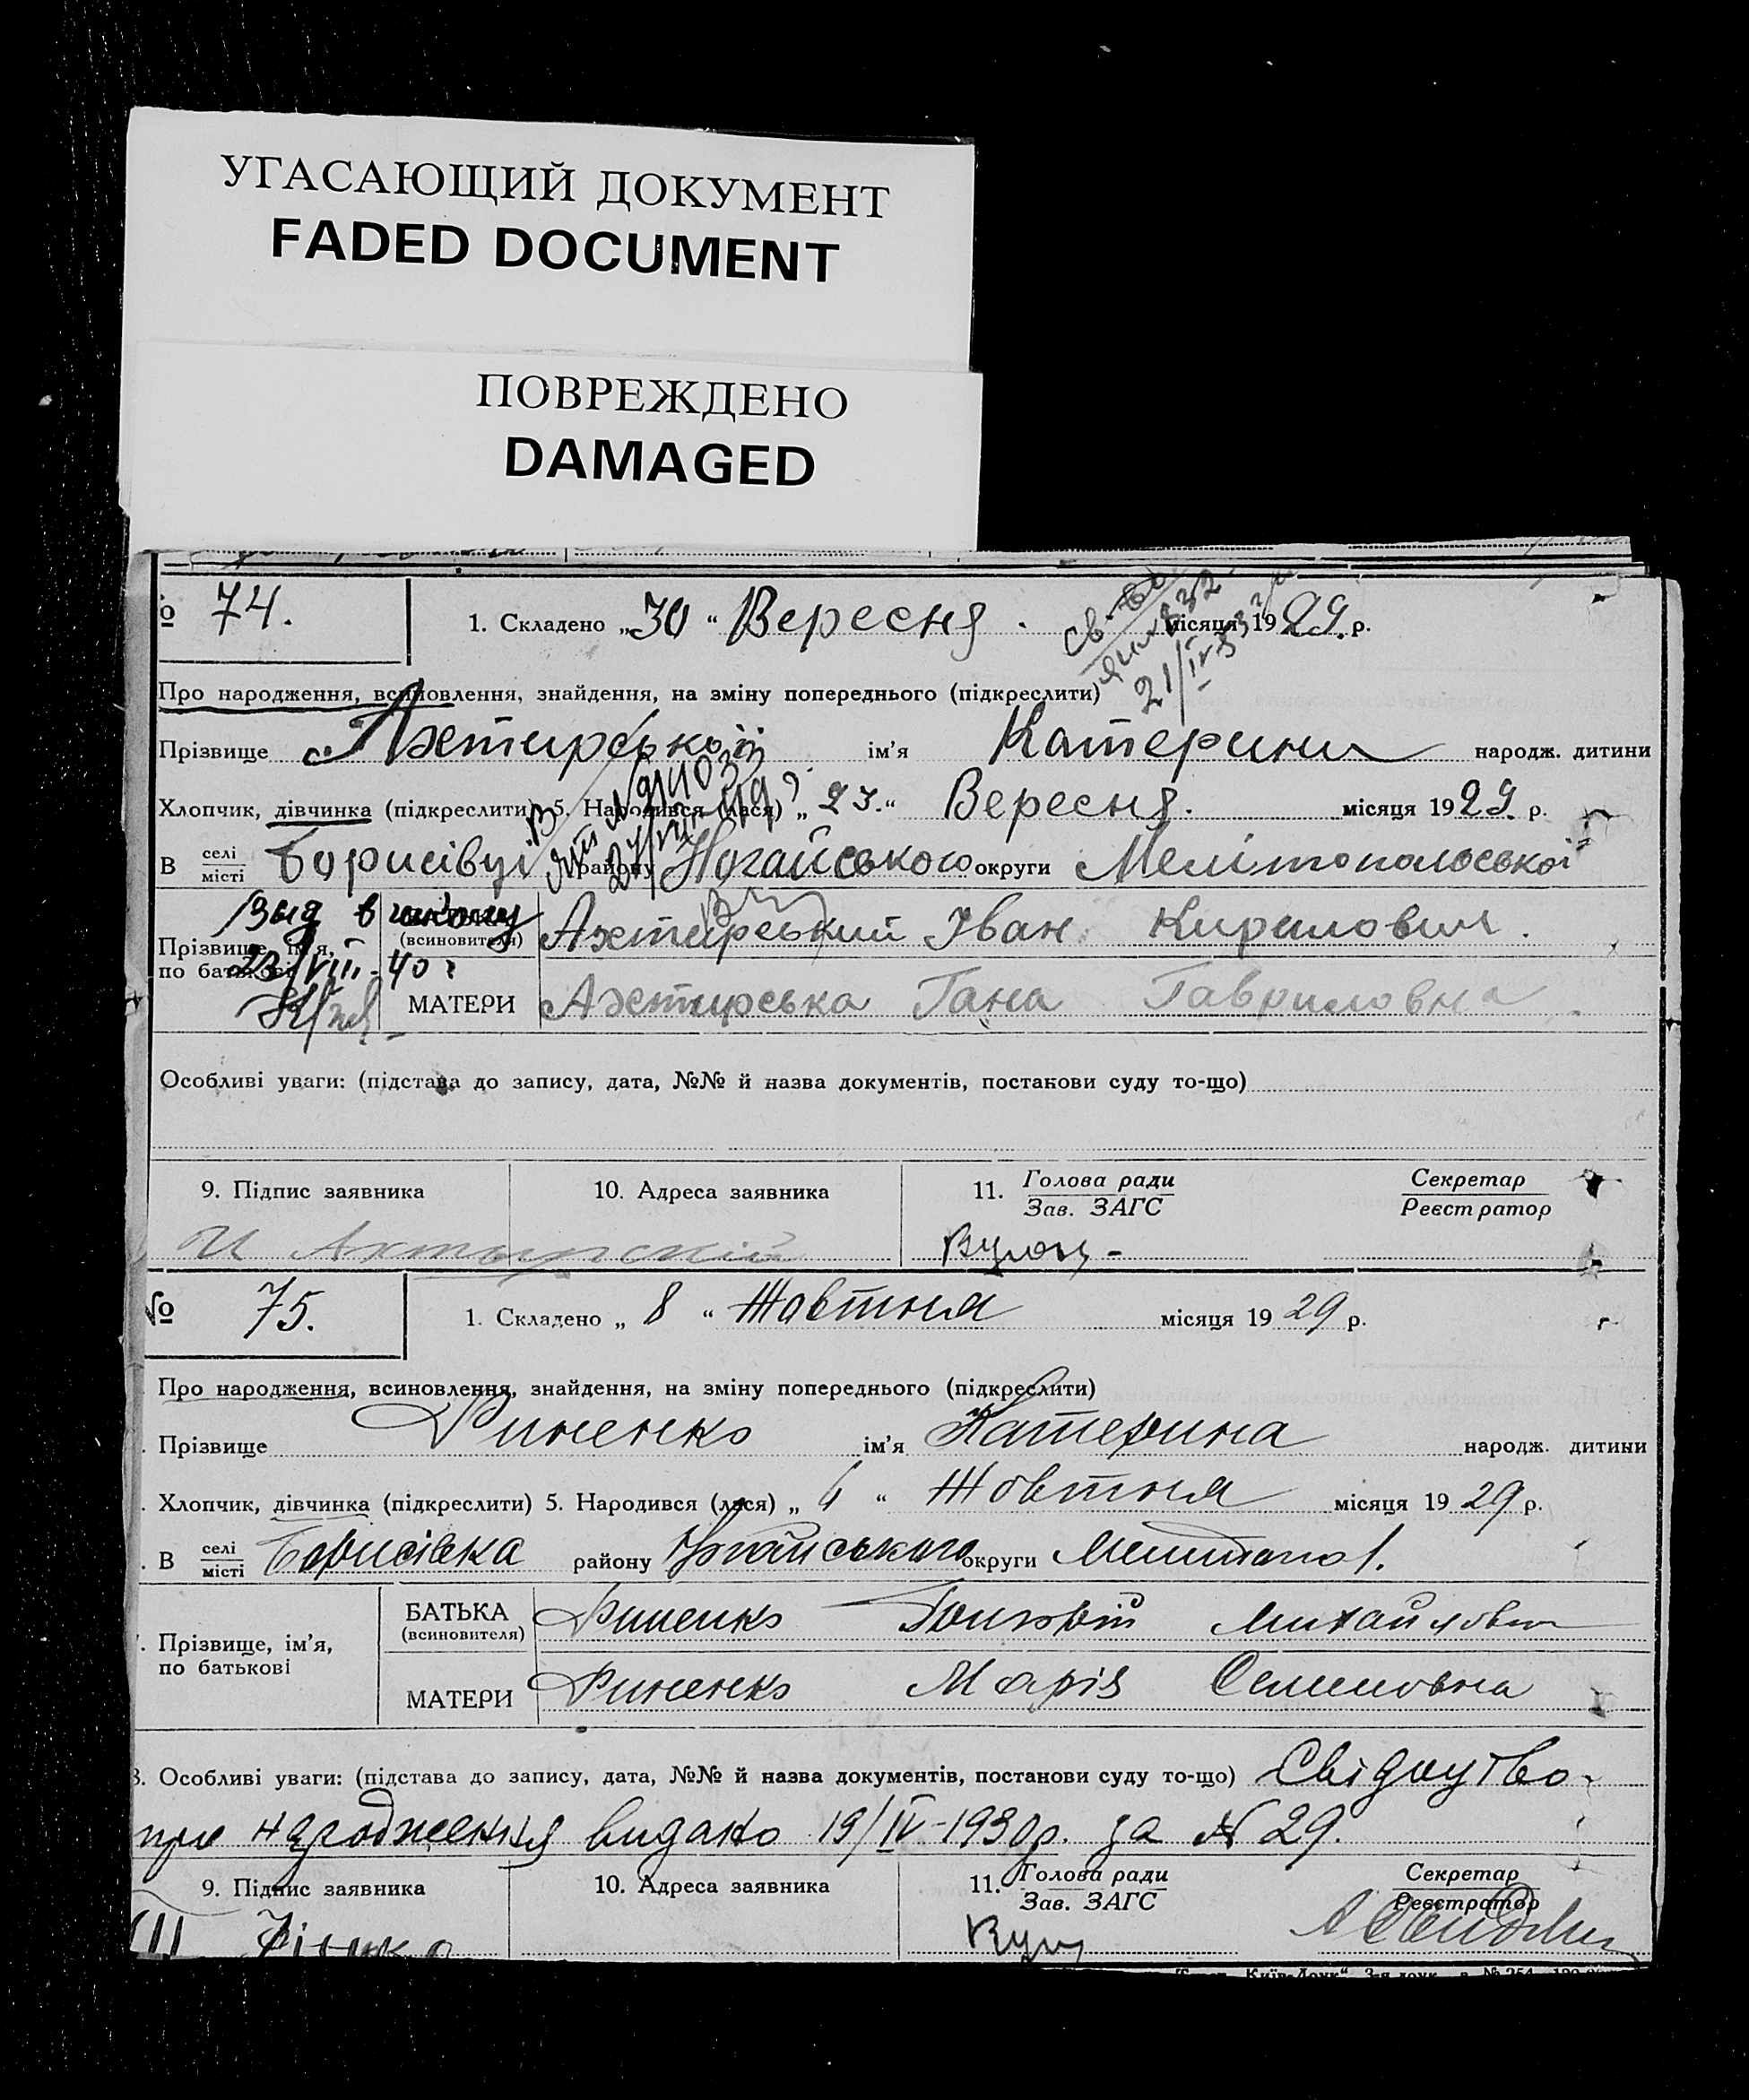 УГАСАЮЩИЙ ДОКУМЕНТ
FADED DOCUMENT
ПОВРЕЖДЕНО
DAMAGED
№ 74.
1. Складено „30“ Вересня місяця 1929. р.
21/IV
Про народження, всиновлення, знайдення, на зміну попереднього (підкреслити)
Прізвище Ахтирської ім’я Катерини народж. дитини
Хлопчик, дівчинка (підкреслити) 5. Народився (лася) „23.“ Вересня. місяця 1929. р.
В селі місті Борисівці району Ногайського округи Мелітопольської
Выд в школу
23/VIII-40 г
Прізвище, ім’я, по батькові
(всиновителя) Ахтирський Іван Кирилович.
МАТЕРИ Ахтирська Гана Гавриловна
Особливі уваги: (підстава до запису, дата, №№ й назва документів, постанови суду то-що)
9. Підпис заявника
10. Адреса заявника
11. Голова ради
Зав. ЗАГС
Секретар
Реєстратор
И Ахтырский
№ 75.
1. Складено „ 8 “ Жовтня місяця 1929 р.
Про народження, всиновлення, знайдення, на зміну попереднього (підкреслити)
Прізвище Риненко ім’я Катерина народж. дитини
Хлопчик, дівчинка (підкреслити) 5. Народився (лася) „ 6 “ Жовтня місяця 1929 р.
В селі місті Борисівка району Ногайського округи
Прізвище, ім’я, по батькові
БАТЬКА (всиновителя) Риненко Михайлович
МАТЕРИ Риненко Марія Семеновна
8. Особливі уваги: (підстава до запису, дата, №№ й назва документів, постанови суду то-що) Свідоцтво
про народження видано 19/IV-1930р. за № 29.
9. Підпис заявника
10. Адреса заявника
11. Голова ради
Зав. ЗАГС
Секретар
Реєстратор